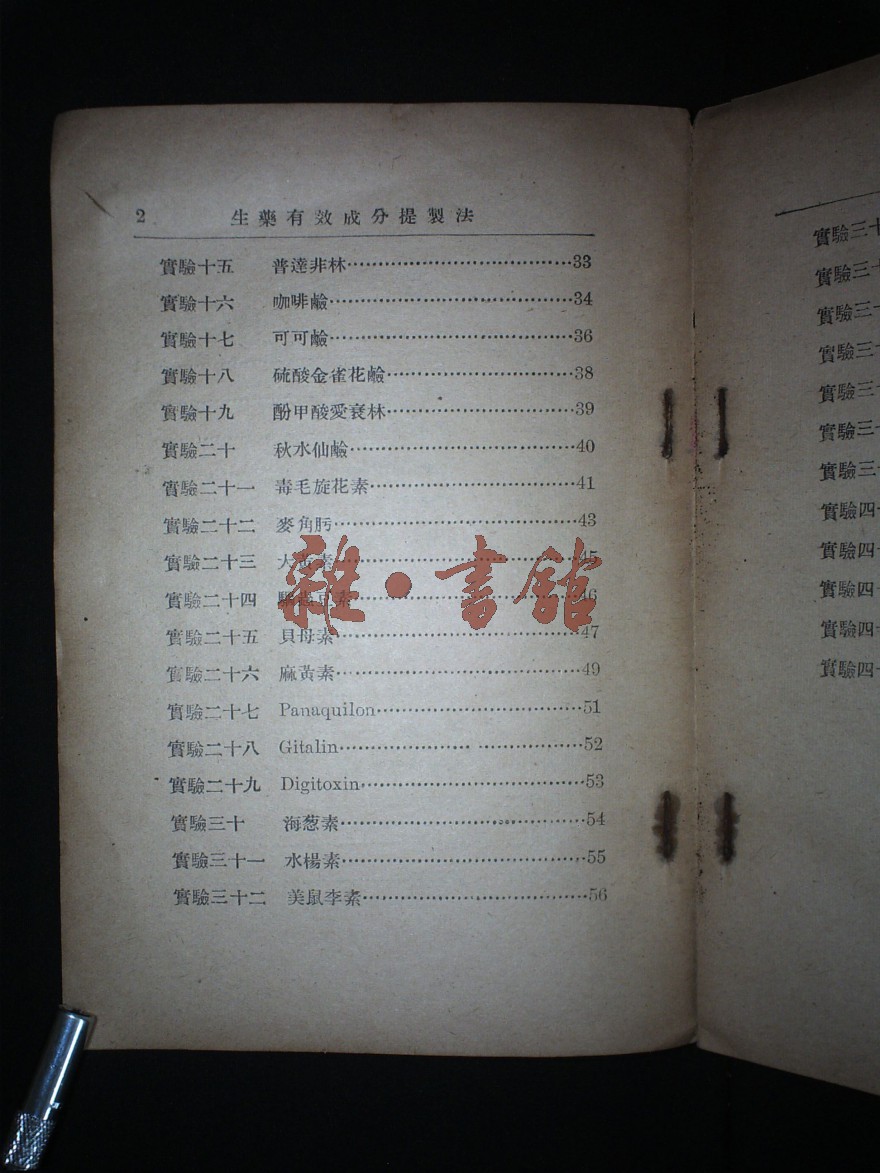 2 生藥有效成分提製法
實驗十五 普達非林…………………………………33
實驗十六 咖啡鹼……………………………………34
實驗十七 可可鹼……………………………………36
實驗十八 硫酸金雀花鹼……………………………38
實驗十九 酚甲酸愛裒林……………………………39
實驗二十 秋水仙鹼…………………………………40
實驗二十一 毒毛旋花素……………………………41
實驗二十二 麥角肟…………………………………43
實驗二十三 大黃素…………………………………45
實驗二十四 ……………………………46
實驗二十五 貝母素…………………………………47
實驗二十六 麻黃素…………………………………49
實驗二十七 Panaquilon……………………………51
實驗二十八 Gitalin…………………………………52
實驗二十九 Digitoxin………………………………53
實驗三十 海葱素……………………………………54
實驗三十一 水楊素…………………………………55
實驗三十二 美鼠李素………………………………56
雜·書館
實驗三十
實驗三十
實驗三十
實驗三十
實驗三十
實驗三十
實驗三十
實驗四十
實驗四十
實驗四十
實驗四十
實驗四十